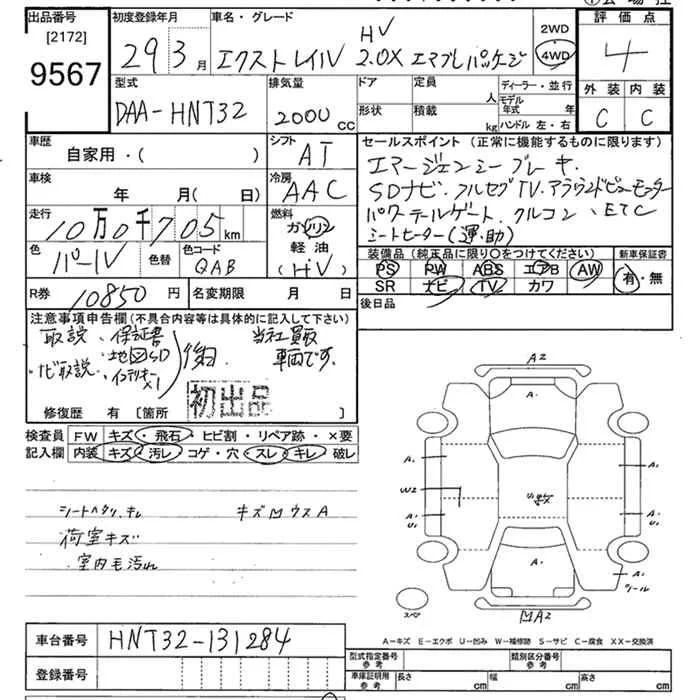 出品番号
[2172]
9567
初度登録年月
29 3月
車名・グレード
HV
エクストレイル 2.0X エマブレパッケージ
2WD
4WD
評価点
4
外装 内装
C C
型式
DAA-HNT32
排気量
2000 CC
ドア
形状
定員
人
積載
kg
ディーラー・並行
モデル年式 年
ハンドル 左・右
車歴
自家用・( )
シフト
AT
車検
年 月(日)
冷房
AAC
走行
10万0千705km
燃料
ガソリン
軽油
(HV)
色
パール
色替
色コード
QAB
R券
10850円
名変期限 月 日
セールスポイント(正常に機能するものに限ります)
エマージェンシーブレーキ.
SDナビ.フルセグTV.アラウンドビューモニター
パワーテールゲート.クルコン、ETC
シートヒーター(運・助)
装備品(純正品に限り○をつけてください)
PS PW ABS エアB AW
SR ナビ TV カワ
新車保証書
有・無
後日品
注意事項申告欄(不具合内容等は具体的に記入して下さい)
取説、保証書
・地図SD
・ナビ取説・インテリキーX1
後日.
当社買取
車両です.
初出品
修復歴 有 [箇所 ]
検査員
記入欄
FW キズ・飛石・ヒビ割・リペア跡・×要
内装 キズ・汚レ・コゲ・穴・スレ・キレ・破レ
シートヘタリ.キレ
キズMウスA
荷室キズ
室内毛汚れ
A2
A.
A.
W2
A'
U1
A1
A'
U1
A.
A1
MA2
スペア
車台番号
HNT32-131284
登録番号
A-キズ E-エクボ U-凹み W-補修跡 S-サビ C-腐食 XX-交換済
型式指定番号
参考
類別区分番号
参考
車庫証明用
参考
長さ cm 幅 cm 高さ cm